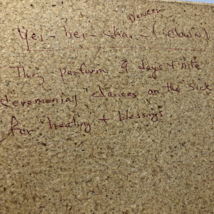 Dancers
Yei - Bei - chai - (
They perform 9 days & nite
ceremonial dances on the
for healing & blessings